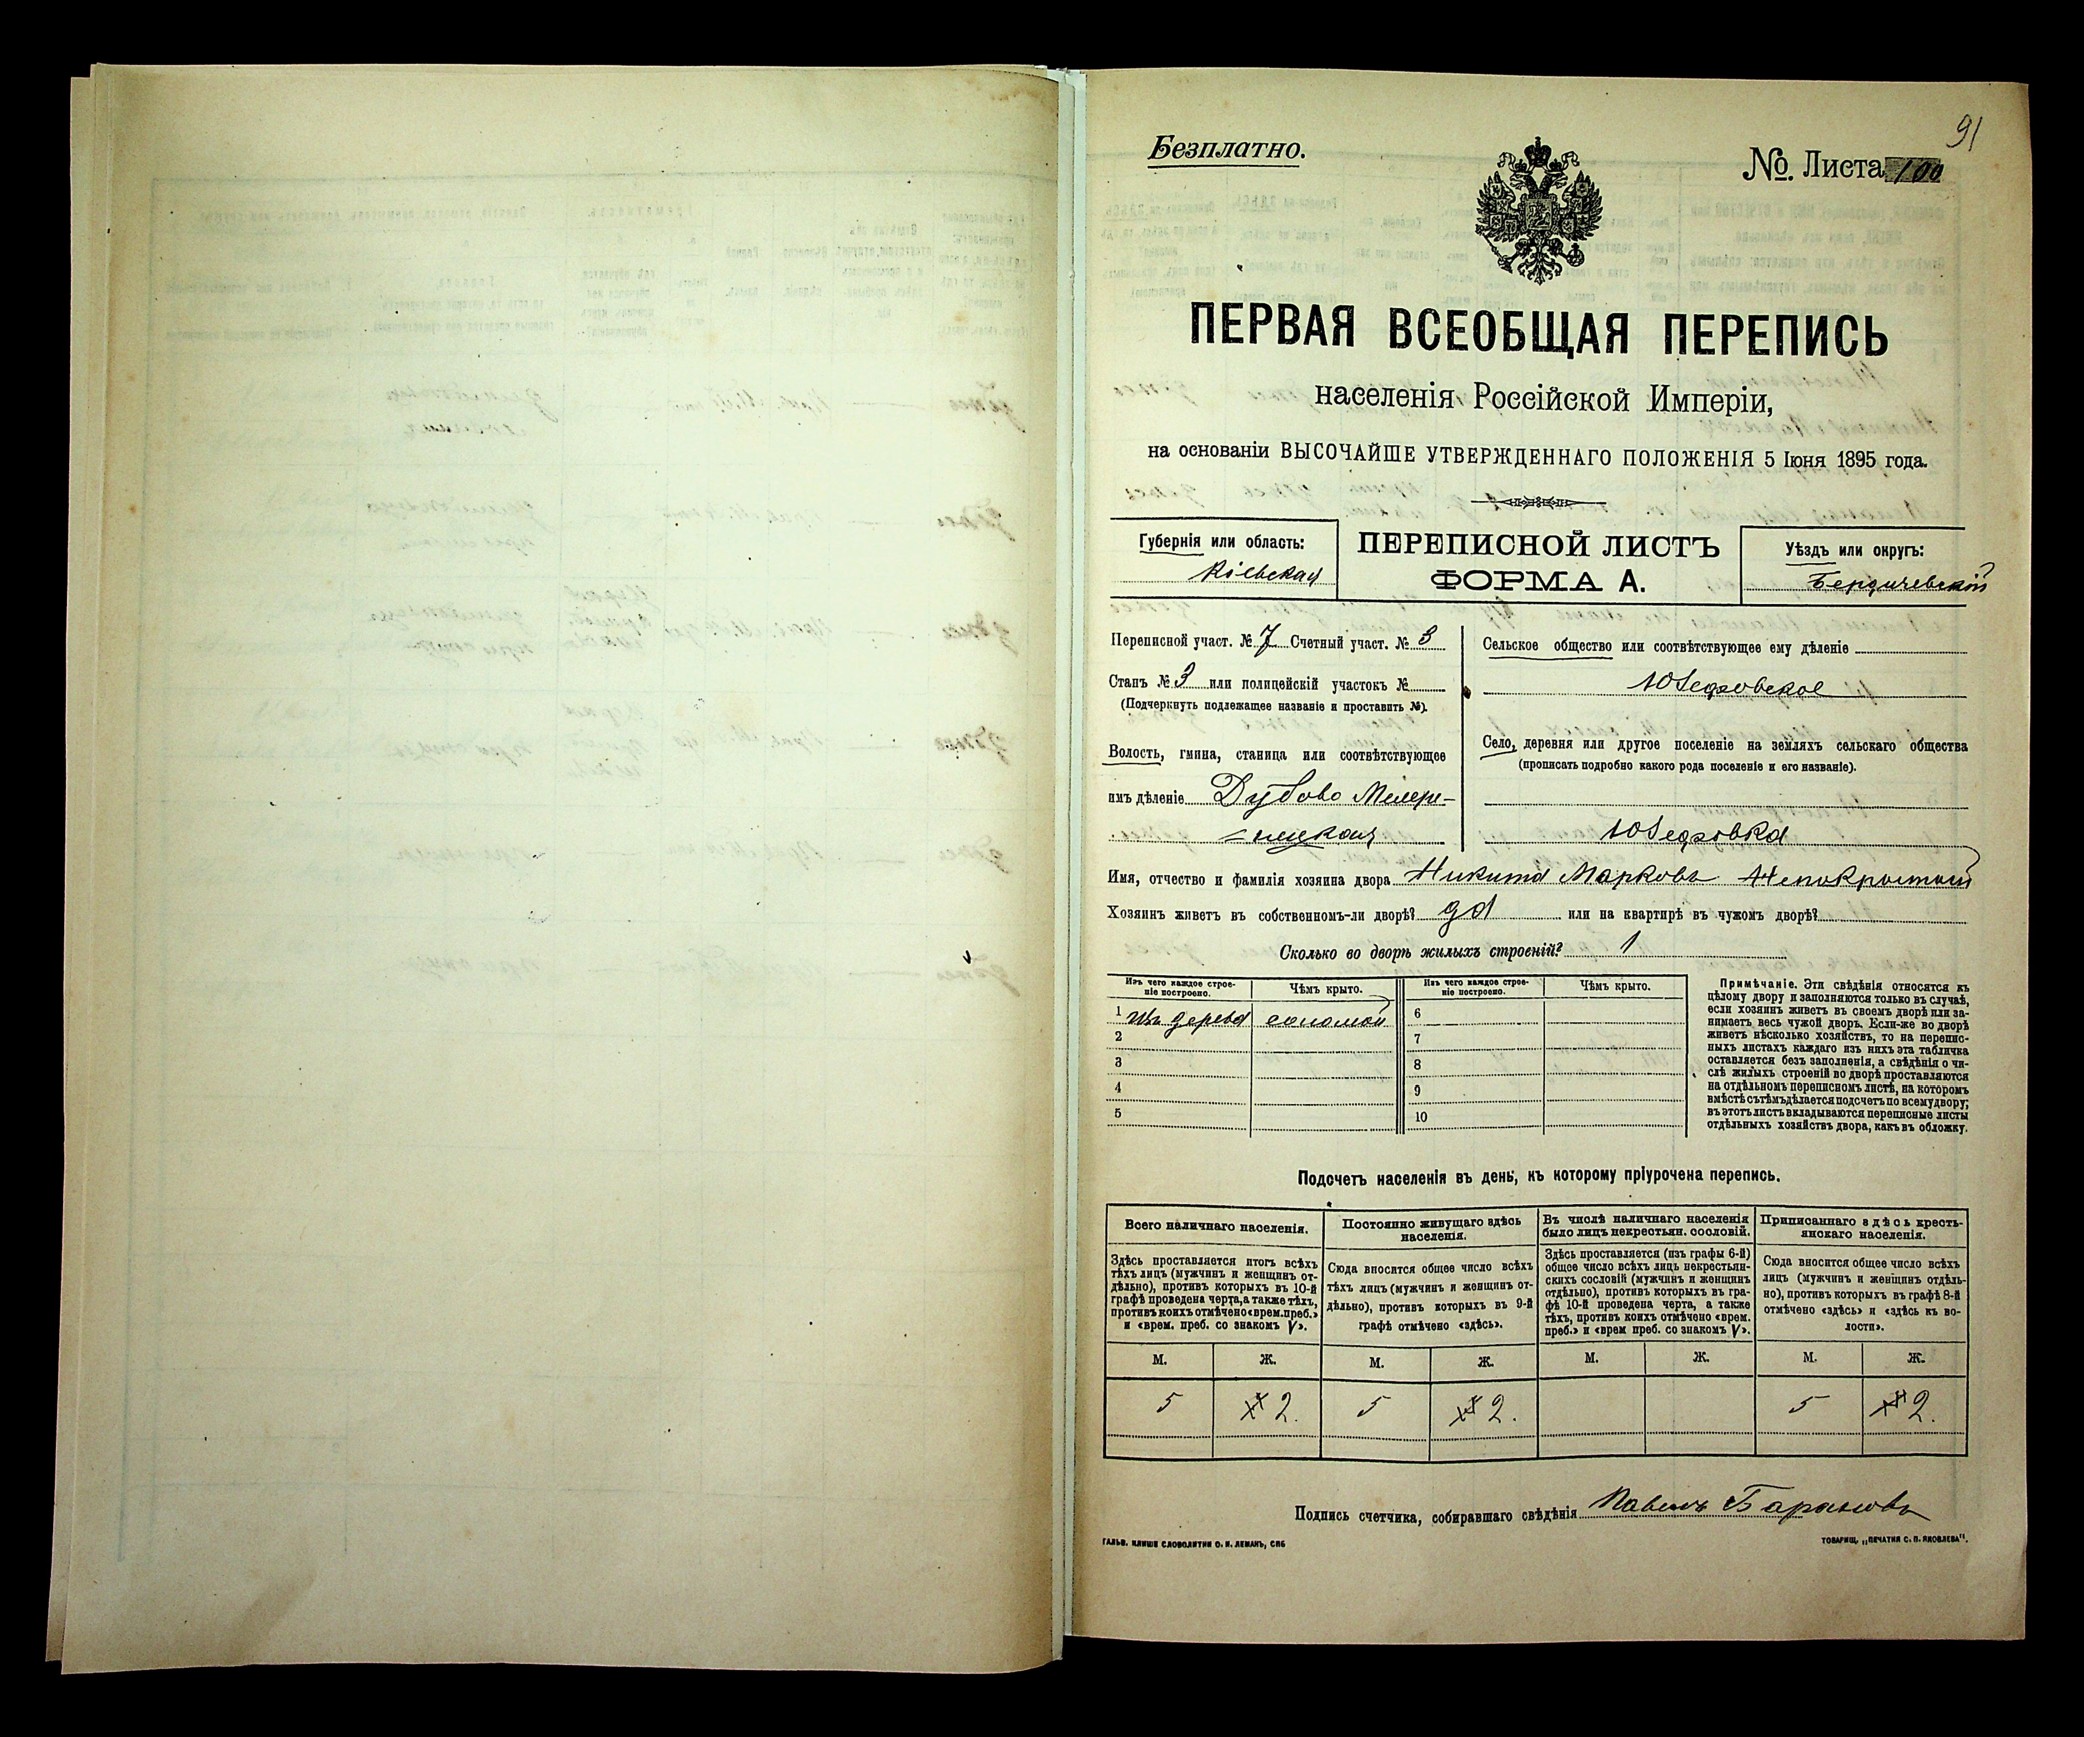 91
Безплатно.
№. Листа 100
ПЕРВАЯ ВСЕОБЩАЯ ПЕРЕПИСЬ
населенія Россійской Имперіи,
на основаніи ВЫСОЧАЙШЕ УТВЕРЖДЕННАГО ПОЛОЖЕНІЯ 5 Іюня 1895 года.
Губернія или область:
Кіевская
ПЕРЕПИСНОЙ ЛИСТЪ
ФОРМА А.
Уѣздъ или округъ:
Бердичевскій
Переписной участ. № 7 Счетный участ. № 3
Станъ № 3 или полицейскій участокъ №
(Подчеркнуть подлежащее названіе и проставить №).
Волость, гмина, станица или соотвѣтствующее
имъ дѣленіе Дубово
Сельское общество или соотвѣтствующее ему дѣленіе
Село, деревня или другое поселеніе на земляхъ сельскаго общества
(прописать подробно какого рода поселеніе и его названіе).
Имя, отчество и фамилія хозяина двора Никита Марковъ Непокрытый
Хозяинъ живетъ въ собственномъ-ли дворѣ? да или на квартирѣ въ чужомъ дворѣ?
Сколько во дворѣ жилыхъ строеній? 1
Изъ чего каждое строе-
ніе построено.
Чѣмъ крыто.
Изъ чего каждое строе-
ніе построено.
Чѣмъ крыто.
1 изъ дерева соломой 6
2 7
3 8
4 9
5 10
Примѣчаніе. Эти свѣдѣнія относятся къ
цѣлому двору и заполняются только въ случаѣ,
если хозяинъ живетъ въ своемъ дворѣ или за-
нимаетъ весь чужой дворъ. Если-же во дворѣ
живетъ нѣсколько хозяйствъ, то на перепис-
ныхъ листахъ каждаго изъ нихъ эта табличка
оставляется безъ заполненія, а свѣдѣнія о чи-
слѣ жилыхъ строеній во дворѣ проставляются
на отдѣльномъ переписномъ листѣ, на которомъ
вмѣстѣ съ тѣмъ дѣлается подсчетъ по всему двору;
въ этотъ листъ вкладываются переписные листы
отдѣльныхъ хозяйствъ двора, какъ въ обложку.
Подсчетъ населенія въ день, къ которому пріурочена перепись.
Всего наличнаго населенія.
Здѣсь проставляется итогъ всѣхъ
тѣхъ лицъ (мужчинъ и женщинъ от-
дѣльно), противъ которыхъ въ 10-й
графѣ проведена черта, а также тѣхъ,
противъ коихъ отмѣчено «врем. преб.»
и «врем. преб. со знакомъ V».
Постоянно живущаго здѣсь
населенія.
Сюда вносится общее число всѣхъ
тѣхъ лицъ (мужчинъ и женщинъ от-
дѣльно), противъ которыхъ въ 9-й
графѣ отмѣчено «здѣсь».
Въ числѣ наличнаго населенія
было лицъ некрестьян. сословій.
Здѣсь проставляется (изъ графы 6-й)
общее число всѣхъ лицъ некрестьян-
скихъ сословій (мужчинъ и женщинъ
отдѣльно), противъ которыхъ въ гра-
фѣ 10-й проведена черта, а также
тѣхъ, противъ коихъ отмѣчено «врем.
преб.» и «врем преб. со знакомъ V».
Приписаннаго здѣсь кресть-
янскаго населенія.
Сюда вносится общее число всѣхъ
лицъ (мужчинъ и женщинъ отдѣль-
но), противъ которыхъ въ графѣ 8-й
отмѣчено «здѣсь» и «здѣсь въ во-
лости».
М. Ж. М. Ж. М. Ж. М. Ж.
5 2. 5 2. 5 2.
Подпись счетчика, собиравшаго свѣдѣнія Павелъ Барановъ
ГАЛЬВ. КЛИШЕ СЛОВОЛИТНИ О. И. ЛЕМАНЪ, СПБ
ТОВАРИЩ. „ПЕЧАТНЯ С. П. ЯКОВЛЕВА".